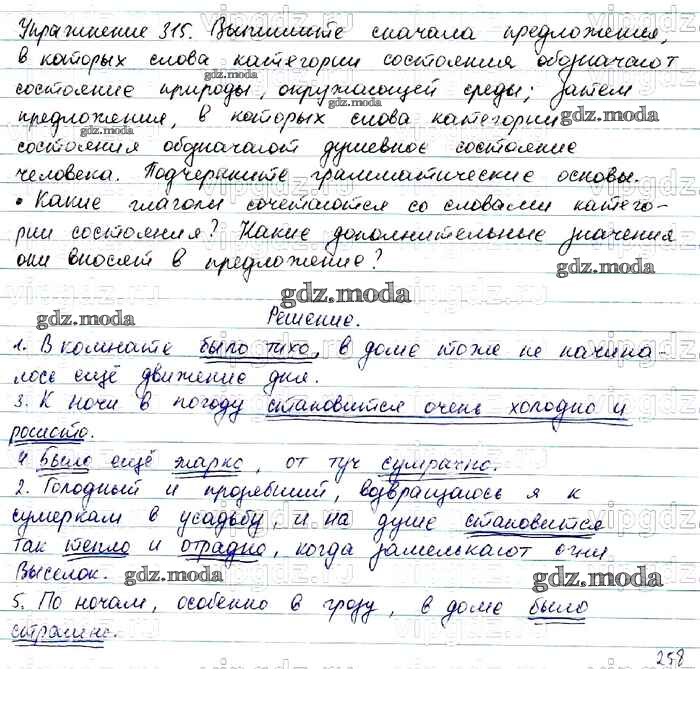 Упражнение 315. Выпишите сначала предложения,
в которых слова категории состояния обозначают
состояние природы, окружающей среды; затем
предложения, в которых слова категории
состояния обозначают душевное состояние
человека. Подчеркните грамматические основы.
• Какие глаголы сочетаются со словами катего-
рии состояния? Какие дополнительные значения
они вносят в предложение?
gdz.moda
Решение.
1. В комнате было тихо, в доме тоже не начина-
лось ещё движение дня.
3. К ночи в погоду становится очень холодно и
росисто.
4. Было ещё жарко, от туч сумрачно.
2. Голодный и прозябший, возвращаюсь я к
сумеркам в усадьбу, и на душе становится
так тепло и отрадно, когда замелькают огни
Выселок.
5. По ночам, особенно в грозу, в доме было
страшно.
258